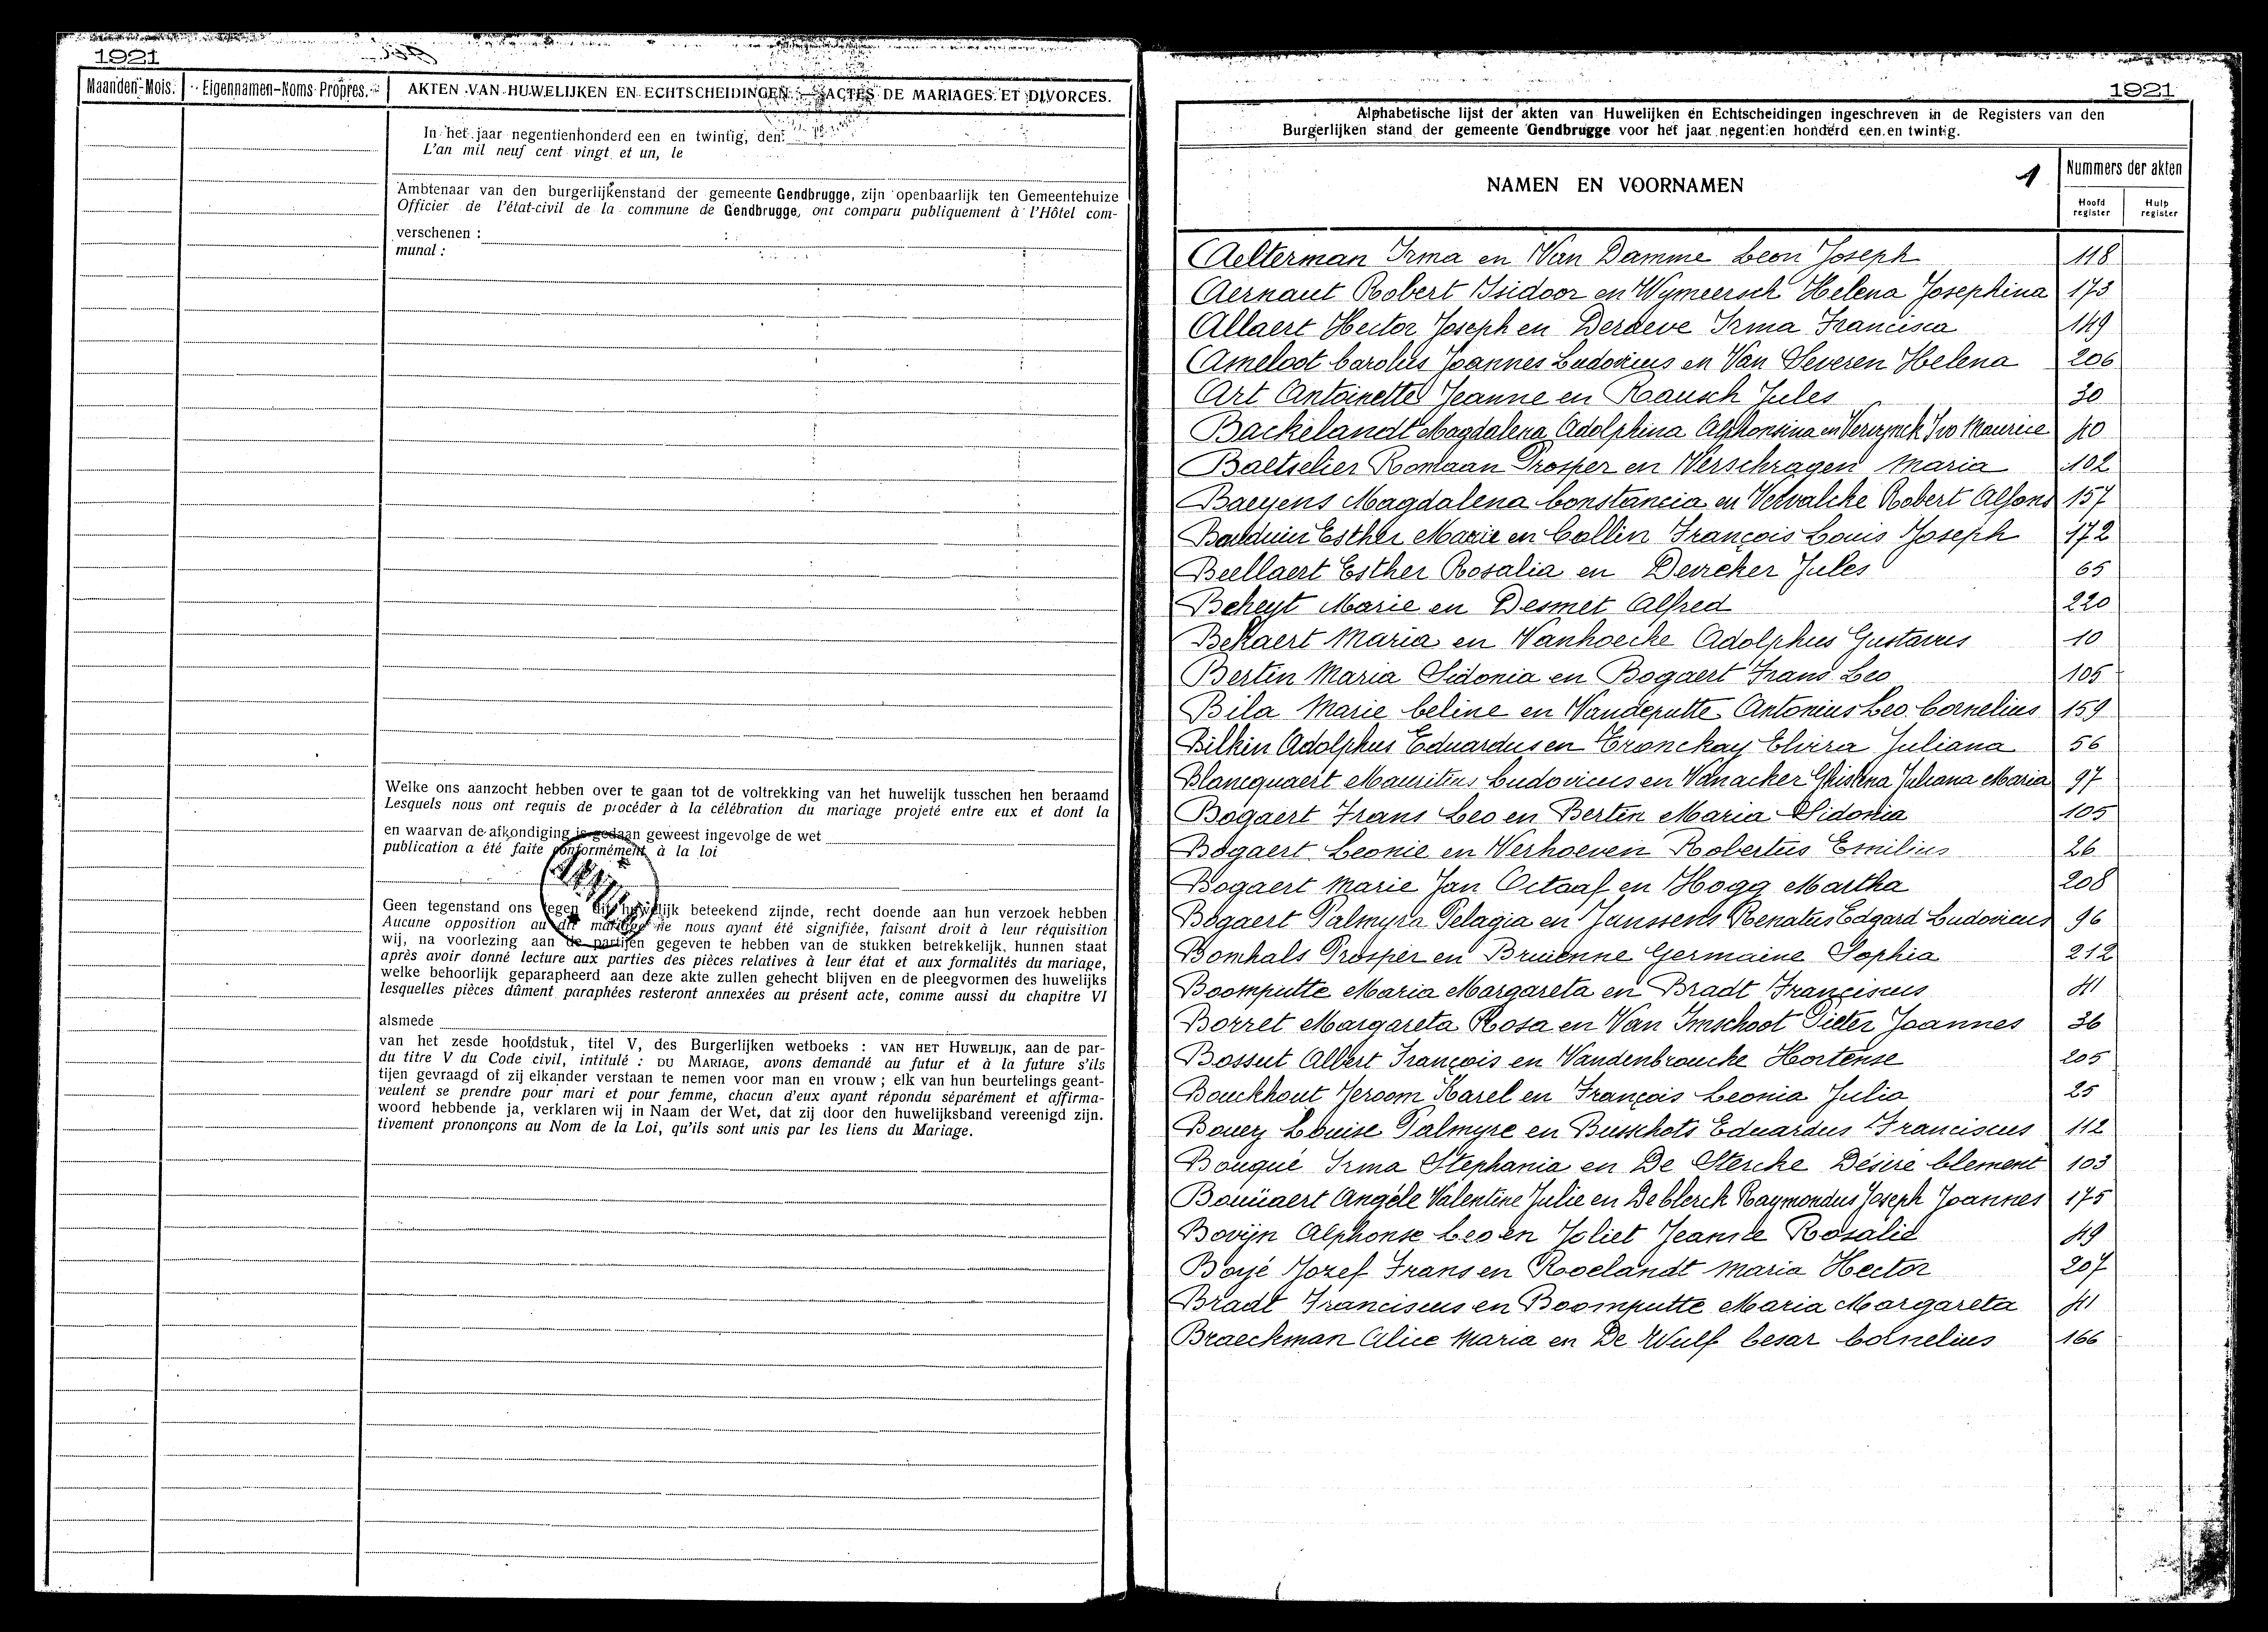 1921
Maanden-Mois. Eigennamen-Noms Propres. AKTEN VAN HUWELIJKEN EN ECHTSCHEIDINGEN. — ACTES DE MARIAGES ET DIVORCES.
In het jaar negentienhonderd een en twintig, den
L'an mil neuf cent vingt et un, le
Ambtenaar van den burgerlijkenstand der gemeente Gendbrugge, zijn openbaarlijk ten Gemeentehuize
Officier de l'état-civil de la commune de Gendbrugge, ont comparu publiquement à l'Hôtel com-
verschenen :
munal :
Welke ons aanzocht hebben over te gaan tot de voltrekking van het huwelijk tusschen hen beraamd
Lesquels nous ont requis de procéder à la célébration du mariage projeté entre eux et dont la
en waarvan de afkondiging is gedaan geweest ingevolge de wet
publication a été faite conformément à la loi
Geen tegenstand ons tegen dit huwelijk beteekend zijnde, recht doende aan hun verzoek hebben
Aucune opposition au dit mariage ne nous ayant été signifiée, faisant droit à leur réquisition
wij, na voorlezing aan de partijen gegeven te hebben van de stukken betrekkelijk, hunnen staat
après avoir donné lecture aux parties des pièces relatives à leur état et aux formalités du mariage,
welke behoorlijk geparapheerd aan deze akte zullen gehecht blijven en de pleegvormen des huwelijks
lesquelles pièces dûment paraphées resteront annexées au présent acte, comme aussi du chapitre VI
alsmede
van het zesde hoofdstuk, titel V, des Burgerlijken wetboeks : VAN HET HUWELIJK, aan de par-
du titre V du Code civil, intitulé : DU MARIAGE, avons demandé au futur et à la future s'ils
tijen gevraagd of zij elkander verstaan te nemen voor man en vrouw ; elk van hun beurtelings geant-
veulent se prendre pour mari et pour femme, chacun d'eux ayant répondu séparément et affirma-
woord hebbende ja, verklaren wij in Naam der Wet, dat zij door den huwelijksband vereenigd zijn.
tivement prononçons au Nom de la Loi, qu'ils sont unis par les liens du Mariage.
1921
Alphabetische lijst der akten van Huwelijken en Echtscheidingen ingeschreven in de Registers van den
Burgerlijken stand der gemeente Gendbrugge voor het jaar negentien honderd een en twintig.
NAMEN EN VOORNAMEN 1 Nummers der akten
Hoofd register Hulp register
Aelterman Irma en Van Damme Leon Joseph 118
Aernaut Robert Isidoor en Wymeersch Helena Josephina 173
Allaert Hector Joseph en Derdeve Irma Francisca 149
Ameloot Carolus Joannes Ludovicus en Van Severen Helena 206
Art Antoinette Jeanne en Rausch Jules 30
Backelandt Magdalena Adolphina Alphonsina en Vereynck Ivo Maurice 40
Baetselier Romaan Prosper en Verschragen Maria 102
Baeyens Magdalena Constancia en Vervalcke Robert Alfons 157
Balduin Esther Marie en Collin François Louis Joseph 172
Beellaert Esther Rosalia en Deircker Jules 65
Beheyt Marie en Desmet Alfred 220
Bekaert Maria en Vanhoecke Adolphus Gustavus 10
Bertin Maria Sidonia en Bogaert Frans Leo 105
Bila Marie Celine en Vandeputte Antonius Leo Cornelius 159
Bilkin Adolphus Eduardus en Tronckay Elvira Juliana 56
Blancquaert Mauritius Ludovicus en Vanacker Ghislena Juliana Maria 97
Bogaert Frans Leo en Bertin Maria Sidonia 105
Bogaert Leonie en Verhoeven Robertus Emilius 26
Bogaert Marie Jan Octaaf en Hogg Martha 208
Bogaert Palmyra Pelagia en Janssens Renatus Edgard Ludovicus 96
Bomhals Prosper en Bruienne Germaine Sophia 212
Boomputte Maria Margareta en Bradt Franciscus 41
Borret Margareta Rosa en Van Imschoot Pieter Joannes 36
Bossut Albert François en Vandenbroucke Hortense 205
Bouckhout Jeroom Karel en François Leonia Julia 25
Bouey Louise Palmyre en Busschots Eduardus Franciscus 112
Bouqué Irma Stephania en De Stercke Désiré Clement 103
Bouüaert Angèle Valentine Julie en De Clerck Raymondus Joseph Joannes 175
Bovijn Alphonse Leo en Joliet Jeanne Rosalie 49
Boyé Jozef Frans en Roelandt Maria Hector 207
Bradt Franciscus en Boomputte Maria Margareta 41
Braeckman Alice Maria en De Wulf Cesar Cornelius 166